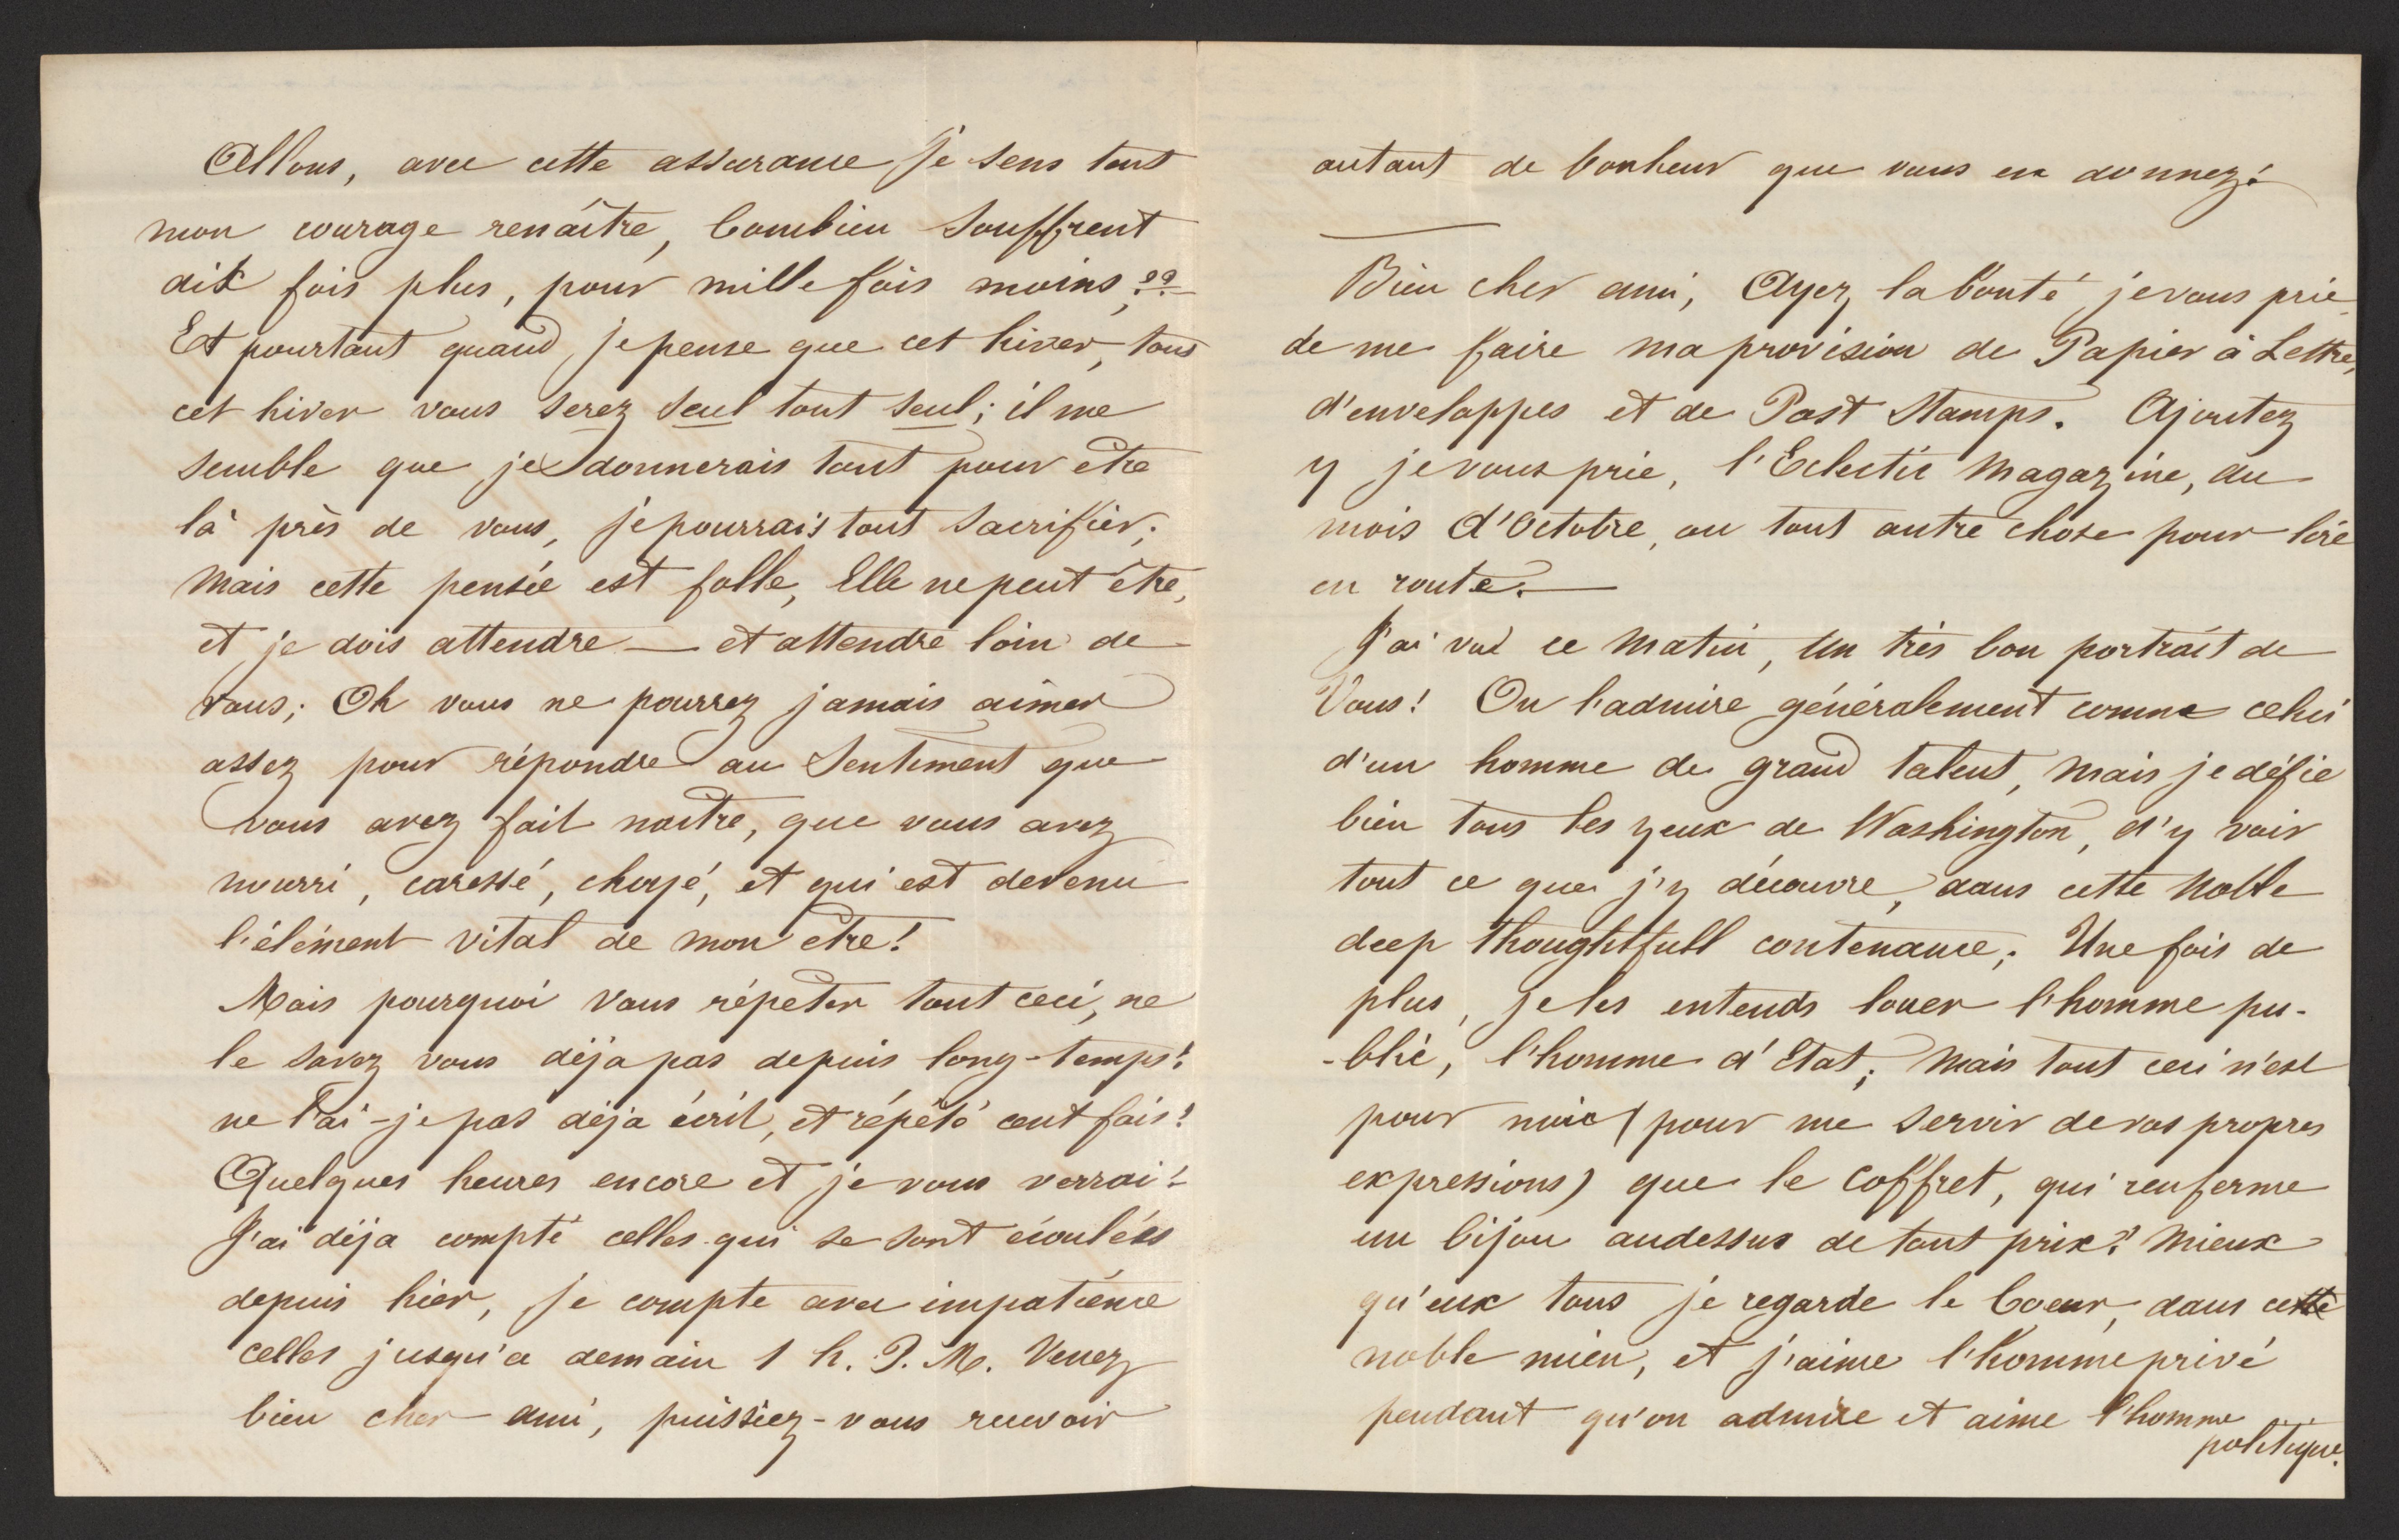 Allons, avec cette assurance je sens tout
mon courage renaître, Combien souffrent
dix fois plus, pour mille fois moins??
Et pourtant quand je pense que cet hiver, tout
cet hiver vous serez seul tout seul; il me
semble que je donnerais tout pour etre
là près de vous, je pourrais tout sacrifier;
Mais cette pensée est folle, Elle ne peut être,
et je dois attendre — et attendre loin de
vous; Oh vous ne pourrez jamais aimer
assez pour répondre au Sentiment que
vous avez fait naitre, que vous avez
nourri, caressé, choyé, et qui est devenu
l'élément vital de mon etre!
Mais pourquoi Vous répeter tout ceci, ne
le savez vous déja pas depuis long-temps!
ne l'ai-je pas déja écrit, et répété cent fois!
Quelques heures encore et je vous verrai!
J'ai déja compté celles qui se sont écoulées
depuis hier, je compte avec impatience
celles jusqu'a demain 1 h. P. M. Venez
bien cher ami, puissiez-vous recevoir
autant de bonheur que vous en donnez!
Bien cher ami, Ayez la bonté je vous prie
de me faire ma provision de Papier à Lettre,
d'enveloppes et de Post Stamps. Ajoutez
y je vous prie, l'Eclectic Magazine, du
mois d'Octobre, ou tout autre chose pour lire
en route. —
J'ai vu ce Matin, Un très bon portrait de
Vous! On l'admire généralement comme celui
d'un homme de grand talent, Mais je défie
bien tous les yeux de Washington, d'y voir
tout ce que j'y découvre, dans cette Noble
deep thoughtfull contenance; Une fois de
plus, je les entends louer l'homme pu-
-blic, l'homme d'Etat; Mais tout ceci n'est
pour moi (pour me servir de vos propres
expressions) que le Coffret, qui renferme
un bijou audessus de tout prix! Mieux
qu'eux tous je regarde le Coeur, dans cette
noble mien, et j'aime l'homme privé
pendant qu'on admire et aime l'homme
politique.